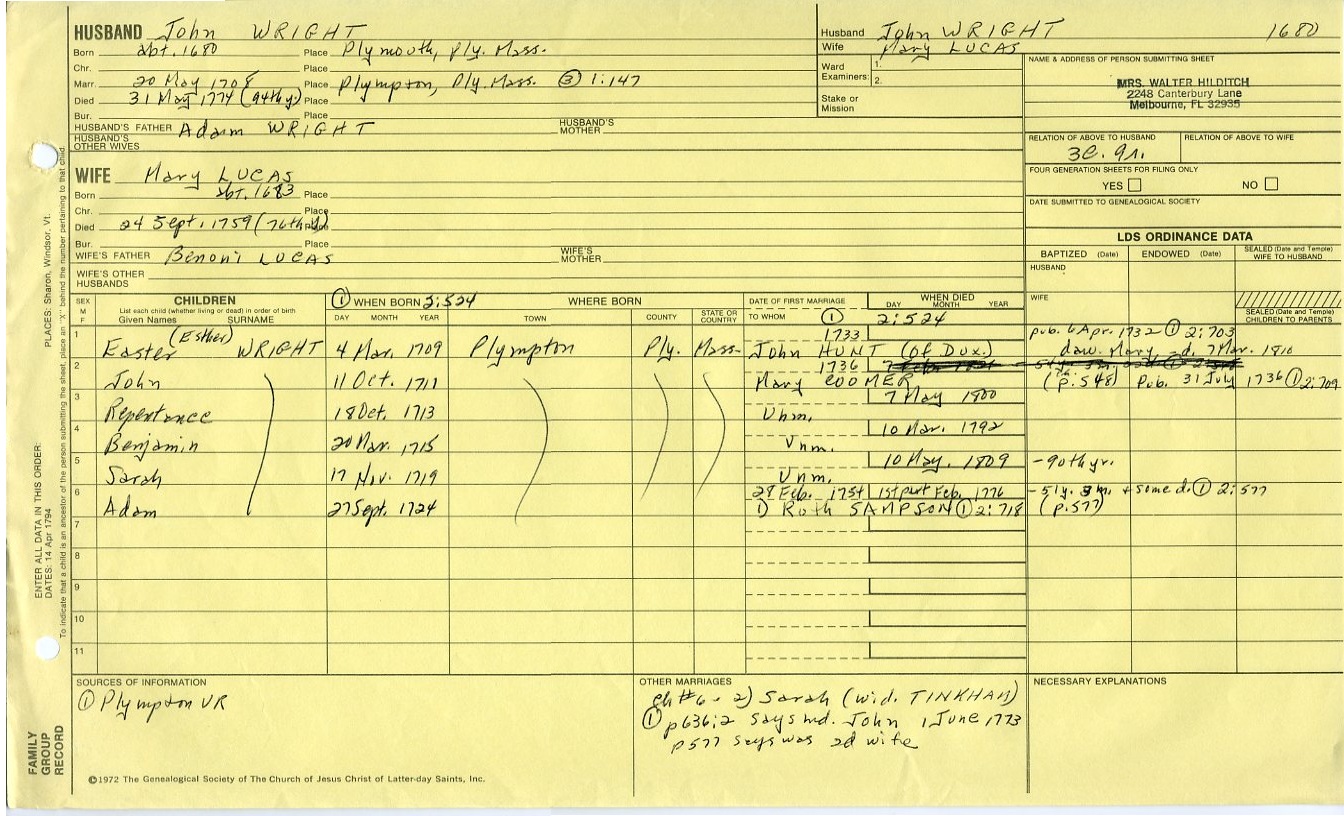 HUSBAND John WRIGHT
Born abt. 1680 Place Plymouth, Ply. Mass.
Chr. Place
Marr. 20 May 1708 Place Plympton, Ply. Mass. ③ 1:147
Died 31 May 1774 (94thy.) Place
Bur. Place
HUSBAND'S FATHER Adam WRIGHT HUSBAND'S MOTHER
HUSBAND'S OTHER WIVES
WIFE Mary LUCAS
Born abt. 1683 Place
Chr. Place
Died 24 Sept. 1759 (76thy) Place
Bur. Place
WIFE'S FATHER Benoni LUCAS WIFE'S MOTHER
WIFE'S OTHER HUSBANDS
Husband John WRIGHT 1680
Wife Mary LUCAS
Ward Examiners: 1.
2.
Stake or Mission
NAME & ADDRESS OF PERSON SUBMITTING SHEET
MRS. WALTER HILDITCH
2248 Canterbury Lane
Melbourne, FL 32935
RELATION OF ABOVE TO HUSBAND RELATION OF ABOVE TO WIFE
FOUR GENERATION SHEETS FOR FILING ONLY
YES NO
DATE SUBMITTED TO GENEALOGICAL SOCIETY
LDS ORDINANCE DATA
BAPTIZED (Date) ENDOWED (Date) SEALED (Date and Temple) WIFE TO HUSBAND
HUSBAND
WIFE
SEALED (Date and Temple) CHILDREN TO PARENTS
SEX M F CHILDREN ① WHEN BORN 2:524 WHERE BORN DATE OF FIRST MARRIAGE WHEN DIED
List each child (whether living or dead) in order of birth
Given Names SURNAME DAY MONTH YEAR TOWN COUNTY STATE OR COUNTRY TO WHOM ① DAY MONTH YEAR
2:524
1 (Esther) 1733 pub. 6 Apr. 1732 ① 2:703
Easter WRIGHT 4 Mar. 1709 Plympton Ply. Mass. John HUNT (of Dux.) daw. Mary d. 7 Mar. 1810
2 1736
John 11 Oct. 1711 Mary COOMER (p. 548) Pub. 31 July 1736 ① 2:709
3 7 May 1800
Repentance 18 Oct. 1713 Unm.
4 10 Mar. 1792
Benjamin 20 Mar. 1715 Unm.
5 10 May. 1809 -90thyr.
Sarah 17 Nov. 1719 Unm.
6 28 Feb. 1754 1st part Feb. 1776 -51y. 3m. + some d. ① 2:577
Adam 27 Sept. 1724 1) Ruth SAMPSON ① 2:718 (p.577)
7
8
9
10
11
SOURCES OF INFORMATION
① Plympton VR
OTHER MARRIAGES
Ch #6 - 2) Sarah (wid. TINKHAM)
① p636:2 says md. John 1 June 1773
p577 says was 2d wife
NECESSARY EXPLANATIONS
©1972 The Genealogical Society of The Church of Jesus Christ of Latter-day Saints, Inc.
FAMILY GROUP RECORD
ENTER ALL DATA IN THIS ORDER:
DATES: 14 Apr 1794
PLACES: Sharon, Windsor, Vt.
To indicate that a child is an ancestor of the person submitting the sheet, place an "X" behind the number pertaining to that child.